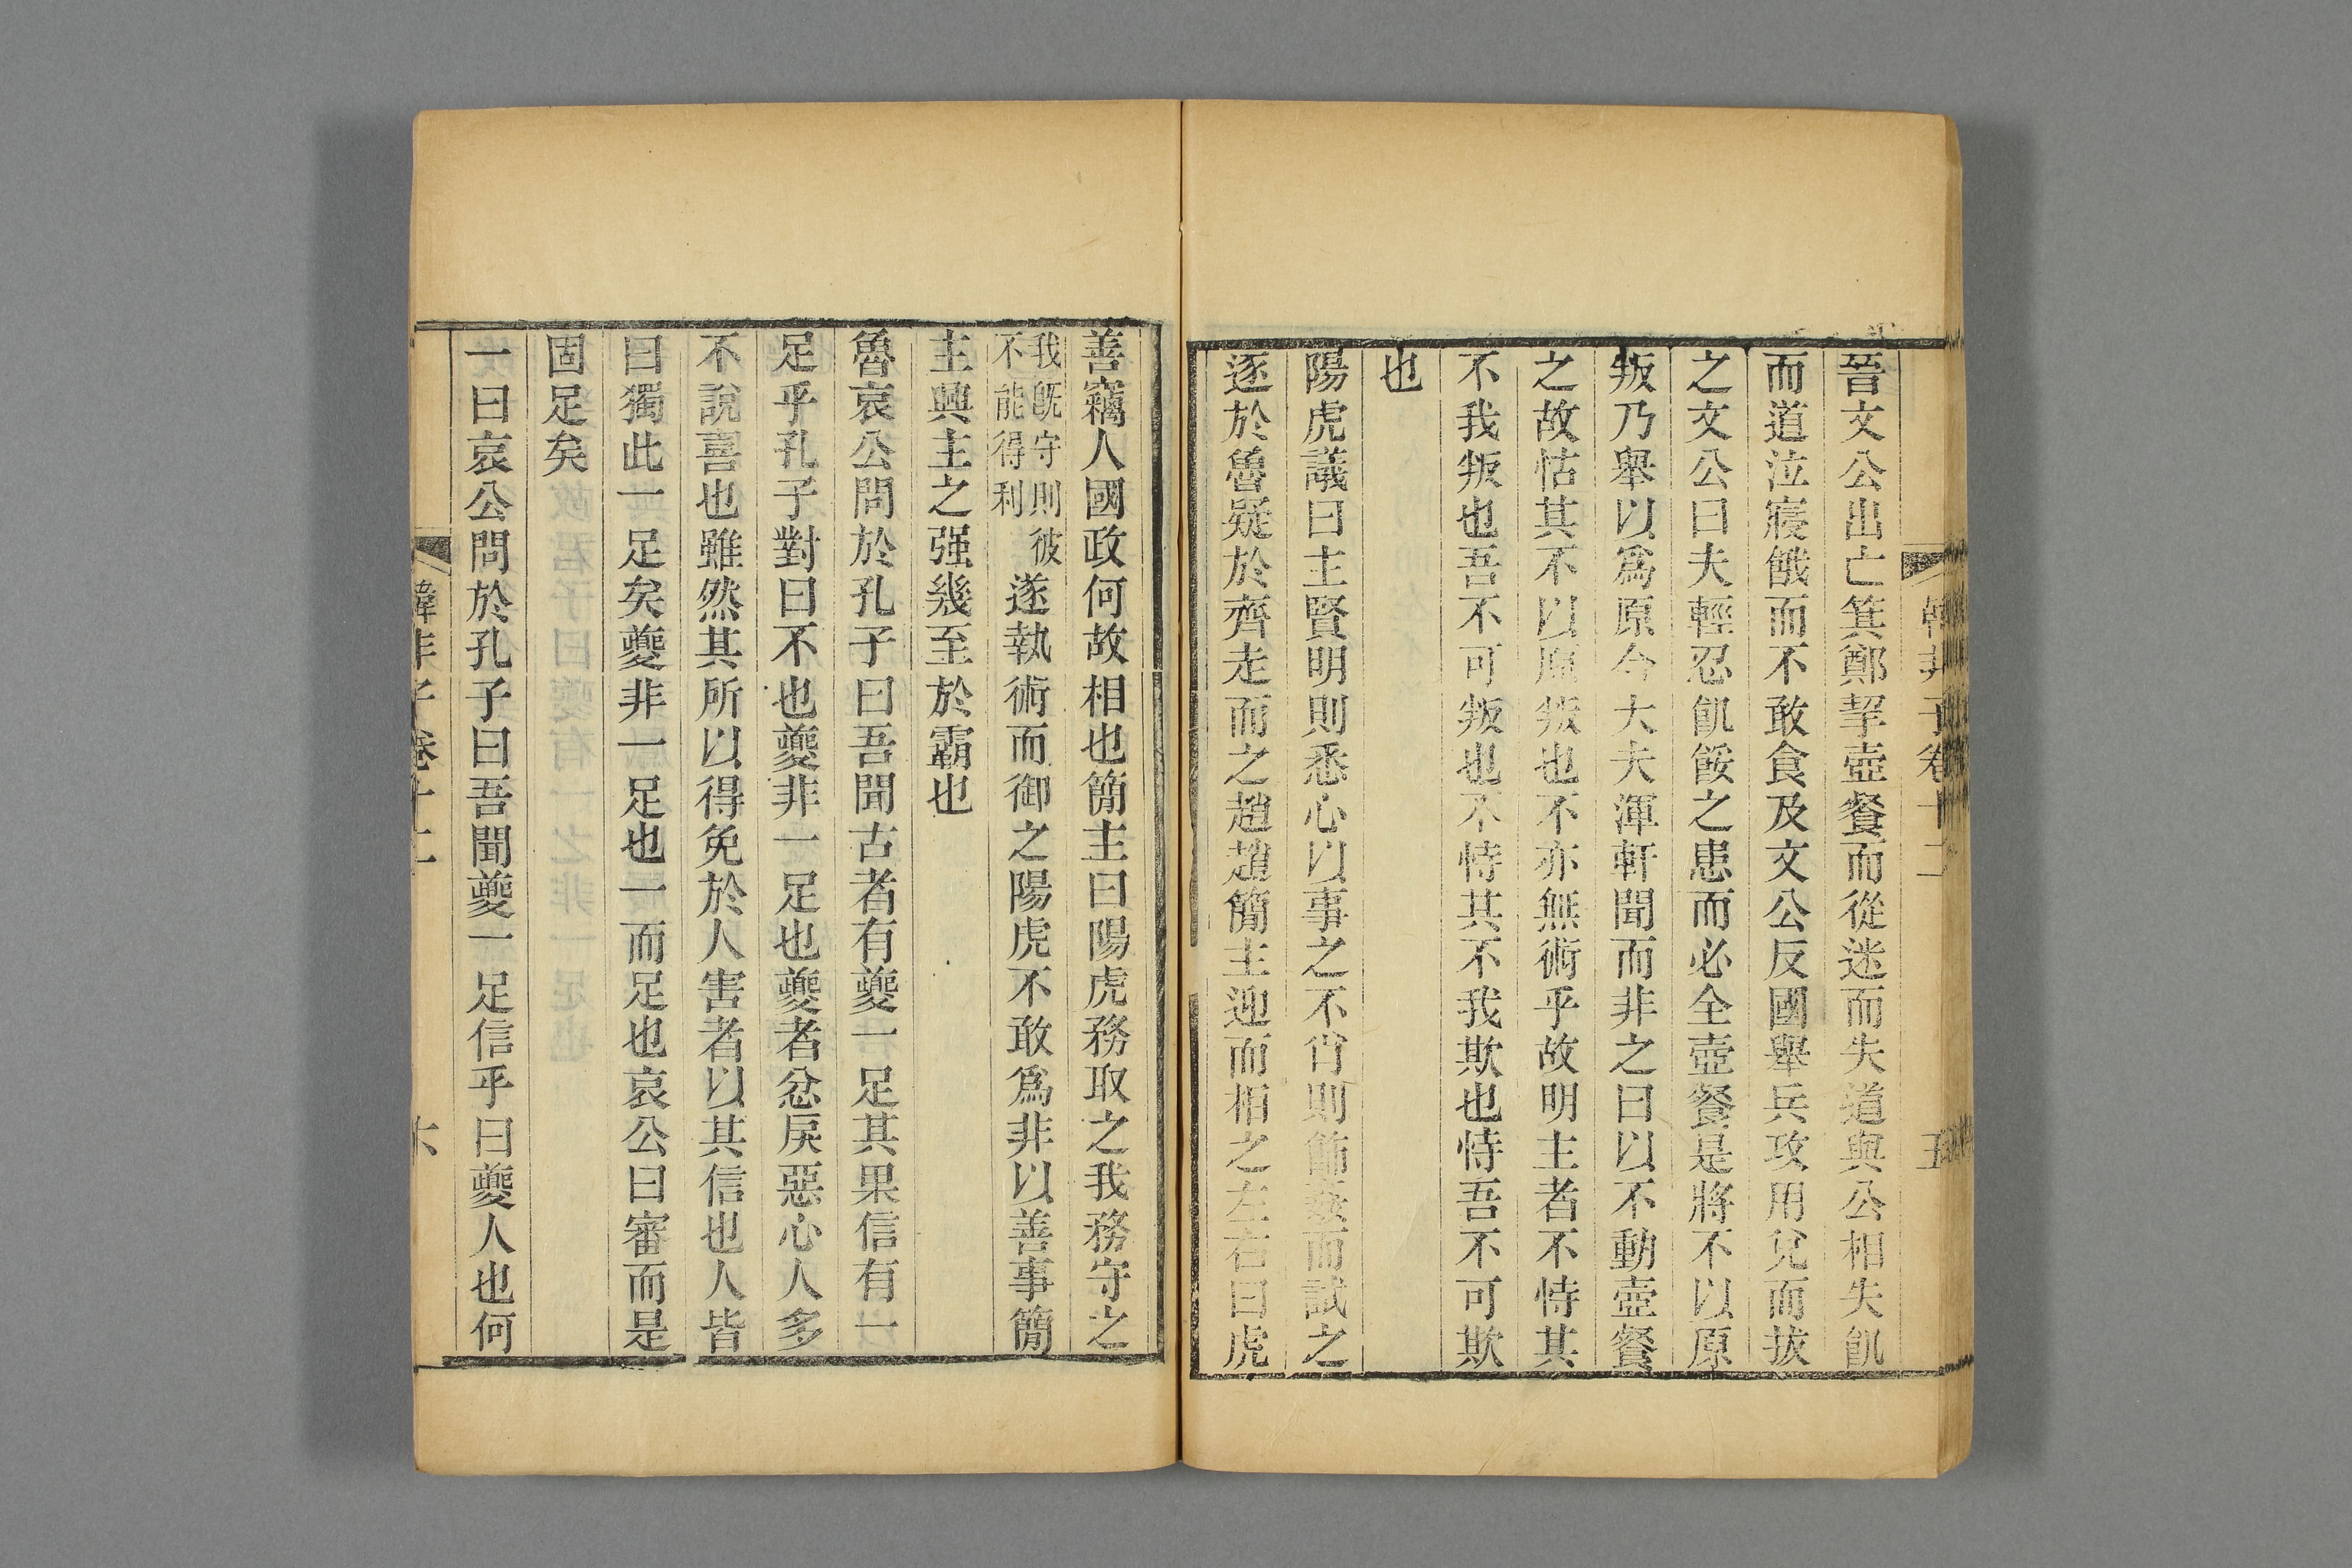 韓非子卷十二
五
晉文公出亡箕鄭挈壺餐而從迷而失道與公相失飢
而道泣寢餓而不敢食及文公反國舉兵攻用兌而拔
之文公曰夫輕忍飢餒之患而必全壺餐是將不以原
叛乃舉以爲原令大夫渾軒聞而非之曰以不動壺餐
之故怙其不以原叛也不亦無術乎故明主者不恃其
不我叛也吾不可叛也不恃其不我欺也恃吾不可欺
也
陽虎議曰主賢明則悉心以事之不肖則飾姦而試之
逐於魯疑於齊走而之趙趙簡主迎而相之左右曰虎
善竊人國政何故相也簡主曰陽虎務取之我務守之
我旣守則彼
不能得利
遂執術而御之陽虎不敢爲非以善事簡
主興主之强幾至於霸也
魯哀公問於孔子曰吾聞古者有夔一足其果信有一
足乎孔子對曰不也夔非一足也夔者忿戾惡心人多
不說喜也雖然其所以得免於人害者以其信也人皆
曰獨此一足矣夔非一足也一而足也哀公曰審而是
固足矣
一曰哀公問於孔子曰吾聞夔一足信乎曰夔人也何
韓非子卷十二
六